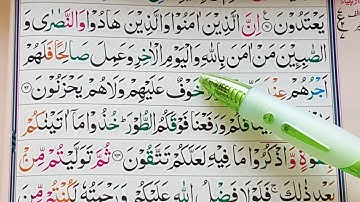 يَعْتَدُوْنَ ﴿۶۱﴾ اِنَّ الَّذِيْنَ اٰمَنُوْا وَالَّذِيْنَ هَادُوْا وَالنَّصٰرٰى وَ
الصّٰبِـِٕيْنَ مَنْ اٰمَنَ بِاللّٰهِ وَالْيَوْمِ الْاٰخِرِ وَعَمِلَ صَالِحًا فَلَهُمْ
اَجْرُهُمْ عِنْدَ خَوْفٌ عَلَيْهِمْ وَلَا هُمْ يَحْزَنُوْنَ ﴿۶۲﴾
وَرَفَعْنَا فَوْقَكُمُ الطُّوْرَ خُذُوْا مَاۤ اٰتَيْنٰكُمْ
بِقُوَّةٍ وَّاذْكُرُوْا مَا فِيْهِ لَعَلَّكُمْ تَتَّقُوْنَ ﴿۶۳﴾ ثُمَّ تَوَلَّيْتُمْ مِّنْۢ
بَعْدِ ذٰلِكَ فَلَوْلَا فَضْلُ اللّٰهِ عَلَيْكُمْ وَرَحْمَتُهٗ لَكُنْتُمْ مِّنَ